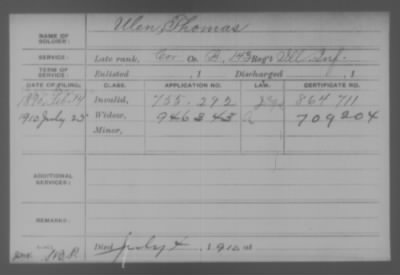 NAME OF SOLDIER: Ulen, Thomas
SERVICE: Late rank, Cor Co. B, 143 Reg't Ill. Inf.
TERM OF SERVICE: Enlisted , 1 Discharged , 1
DATE OF FILING. CLASS. APPLICATION NO. LAW. CERTIFICATE NO.
1890 Feb. 14 Invalid, 755.292 864.711
1910 July 25 Widow, 946343 709204
Minor,
ADDITIONAL SERVICES:
REMARKS:
Died July 1910 at